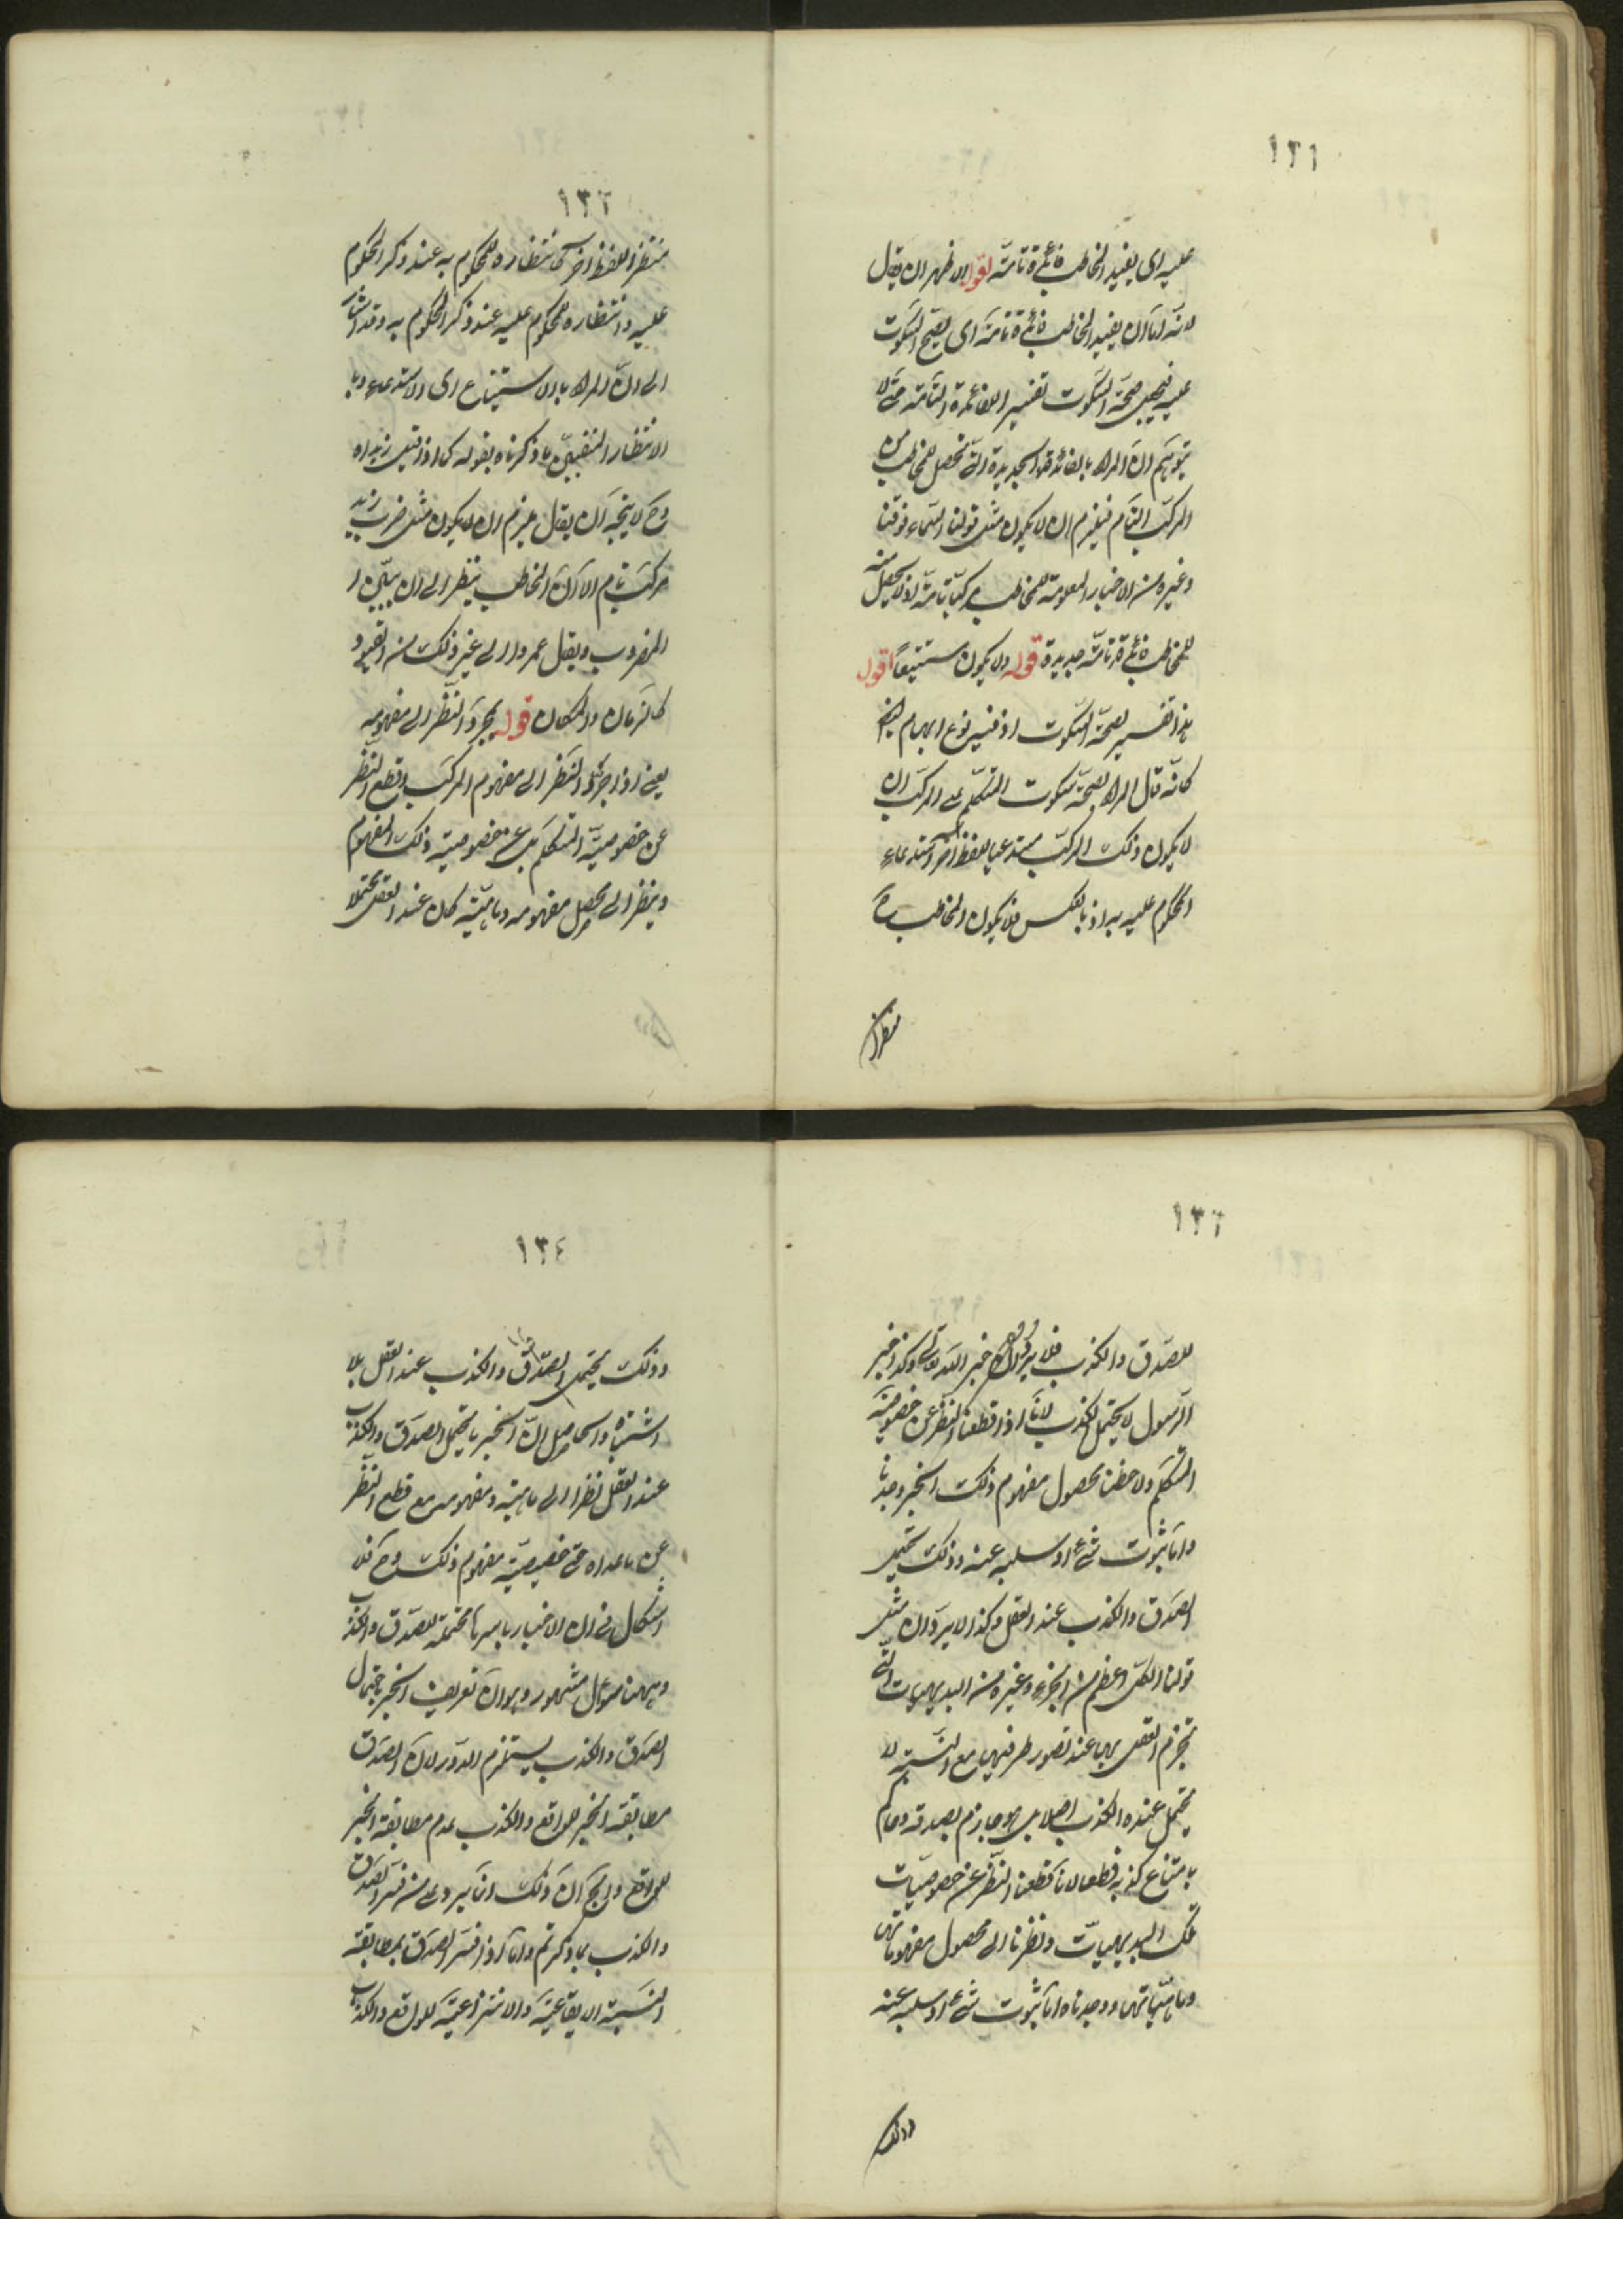 ١٣١
عليه اى يفيد المخاطب فائدة تامة اقول الاظهر ان يقال
لانه اما ان يفيد المخاطب فائدة تامة اى يصح السكوت
عليه فيجعل صحة السكوت تفسير اللفائدة التامة حتى لا
يتوهم ان المراد بالفائدة الجديدة التى تحصل للمخاطب من
المركب التام فيلزم ان لا يكون مثل قولنا السماء فوقنا
وغيره من الاخبار المعلومة للمخاطب مركبا تامة اذ لا يحصل منه
للمخاطب فائدة تامة جديدة قوله ولا يكون مستتبعا اقول
هذا تفسير لصحة السكوت اذ فيه نوع ابهام ايضا
كانه قال المراد بصحة سكوت المتكلم على المركب ان
لا يكون ذلك المركب مستدعيا للفظ آخر استدعاء
المحكوم عليه به او بالعكس فلا يكون المخاطب ح
منتظرا
١٣٢
منتظرا للفظ آخر كانتظاره للمحكوم به عند ذكر المحكوم
عليه وانتظاره للمحكوم عليه عند ذكر المحكوم به وقد اشار
الى ان المراد بالاستتباع اى الاستدعاء وبا
الانتظار المنفيين ما ذكرناه بقوله كما اذا قيل زيد اه
وح لا يتجه ان يقال يلزم ان لا يكون مثل ضرب زيد
مركب تام الا ان المخاطب ينتظر الى ان يبين ا
المضروب ويقال عمرو الى غير ذلك من القيود
كالزمان والمكان قوله بمجرد النظر الى مفهومه
يعنى اذا جرد النظر الى مفهوم المركب وقطع النظر
عن خصوصية المتكلم بل عن خصوصية ذلك المفهوم
وينظر الى محصل مفهومه وماهيته كان عند العقل محتملا
١٣٣
للصدق والكذب فلا يرد ان خبر الله تعالى وكذا خبر
الرسول لا يحتمل الكذب لانا اذا قطعنا النظر عن خصوصية
المتكلم ولاحظنا محصول مفهوم ذلك الخبر وجدنا
واما ثبوت شئ او سلبه عنه وذلك يحتمل
الصدق والكذب عند العقل وكذا لا يرد ان مثل
قولنا الكل اعظم من الجزء وغيره من البديهيات التى
تجزم العقل بها عند تصور طرفيها مع النسبة لا
يحتمل عنده الكذب اصلا بل هو جازم بصدقه وحاكم
بامتناع كذبه قطعا لانا قطعنا النظر عن خصوصيات
تلك البديهيات ونظرنا الى محصول مفهوماتها
وماهياتها ووجدناه اما ثبوت شئ او سلبه عنه
وذلك
١٣٤
وذلك يحتمل الصدق والكذب عند العقل بلا
اشتباه والحاصل ان الخبر ما يحتمل الصدق والكذب
عند العقل نظرا الى ماهيته ومفهومه مع قطع النظر
عن ماعداه حتى خصوصية مفهوم ذلك وح فلا
اشكال فى ان الاخبار باسرها محتملة للصدق والكذب
وههنا سؤال مشهور وهو ان تعريف الخبر باحتمال
الصدق والكذب يستلزم الدور لان الصدق
مطابقة الخبر للواقع والكذب عدم مطابقة الخبر
للواقع والجواب ان ذلك انما يرد على من فسر الصدق
والكذب بما ذكرتم واما اذا فسر الصدق بمطابقة
النسبة الايقاعية والانتزاعية للواقع والكذب